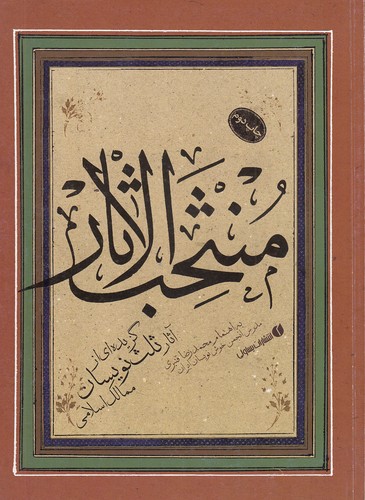 چاپ دوم
منتخب الآثار
گزیده‌ای از
آثار ثلث نویسان
ممالک اسلامی
به اهتمام محمدرضا قنبری
مدرس انجمن خوشنویسان ایران
انتشارات یساولی